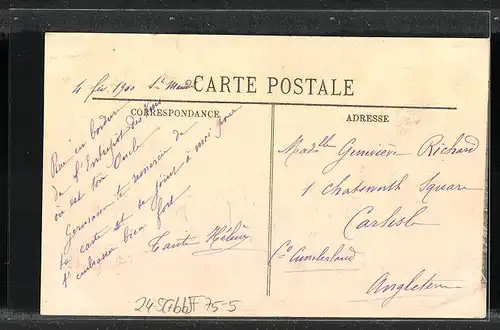 4 fév. 1900 St Mandé
CARTE POSTALE
CORRESPONDANCE
ADRESSE
Rue en bordure
de l'Entrepôt des vins
où est ton Oncle
Germain te remercie de
ta carte et se joint à moi pour
t'embrasser bien fort
Tante Hélène
Madlle Geneviève Richard
1 Chatsworth Square
Carlisle
Co Cumberland
Angleterre